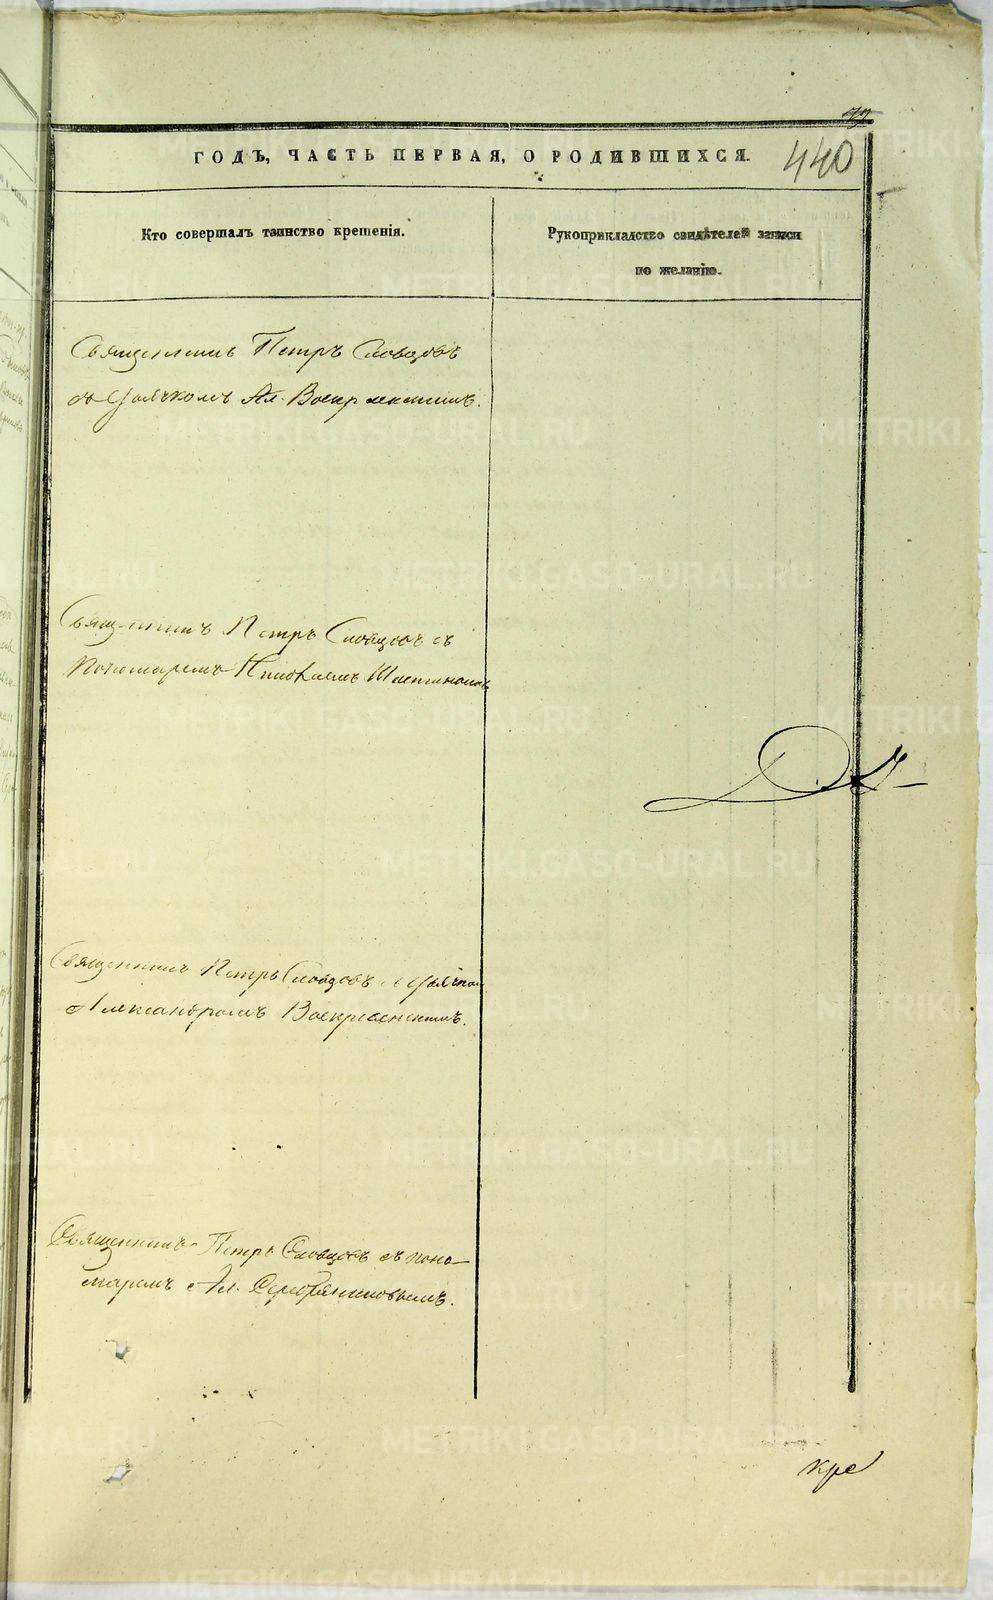 77
440
ГОДЪ, ЧАСТЬ ПЕРВАЯ, О РОДИВШИХСЯ.
Кто совершалъ таинство крещенія.
Рукоприкладство свидѣтелей записи
по желанію.
Священникъ Петръ Словцовъ
съ Дьячкомъ Ал. Воскресенскимъ.
Священникъ Петръ Словцовъ съ
Пономаремъ
Священникъ Петръ Словцовъ съ Дьячком
Александромъ Воскресенскимъ.
Священникъ Петръ Словцовъ съ поно-
маремъ Ал. Серебренниковымъ.
кре
METRIKI.GASO-URAL.RU